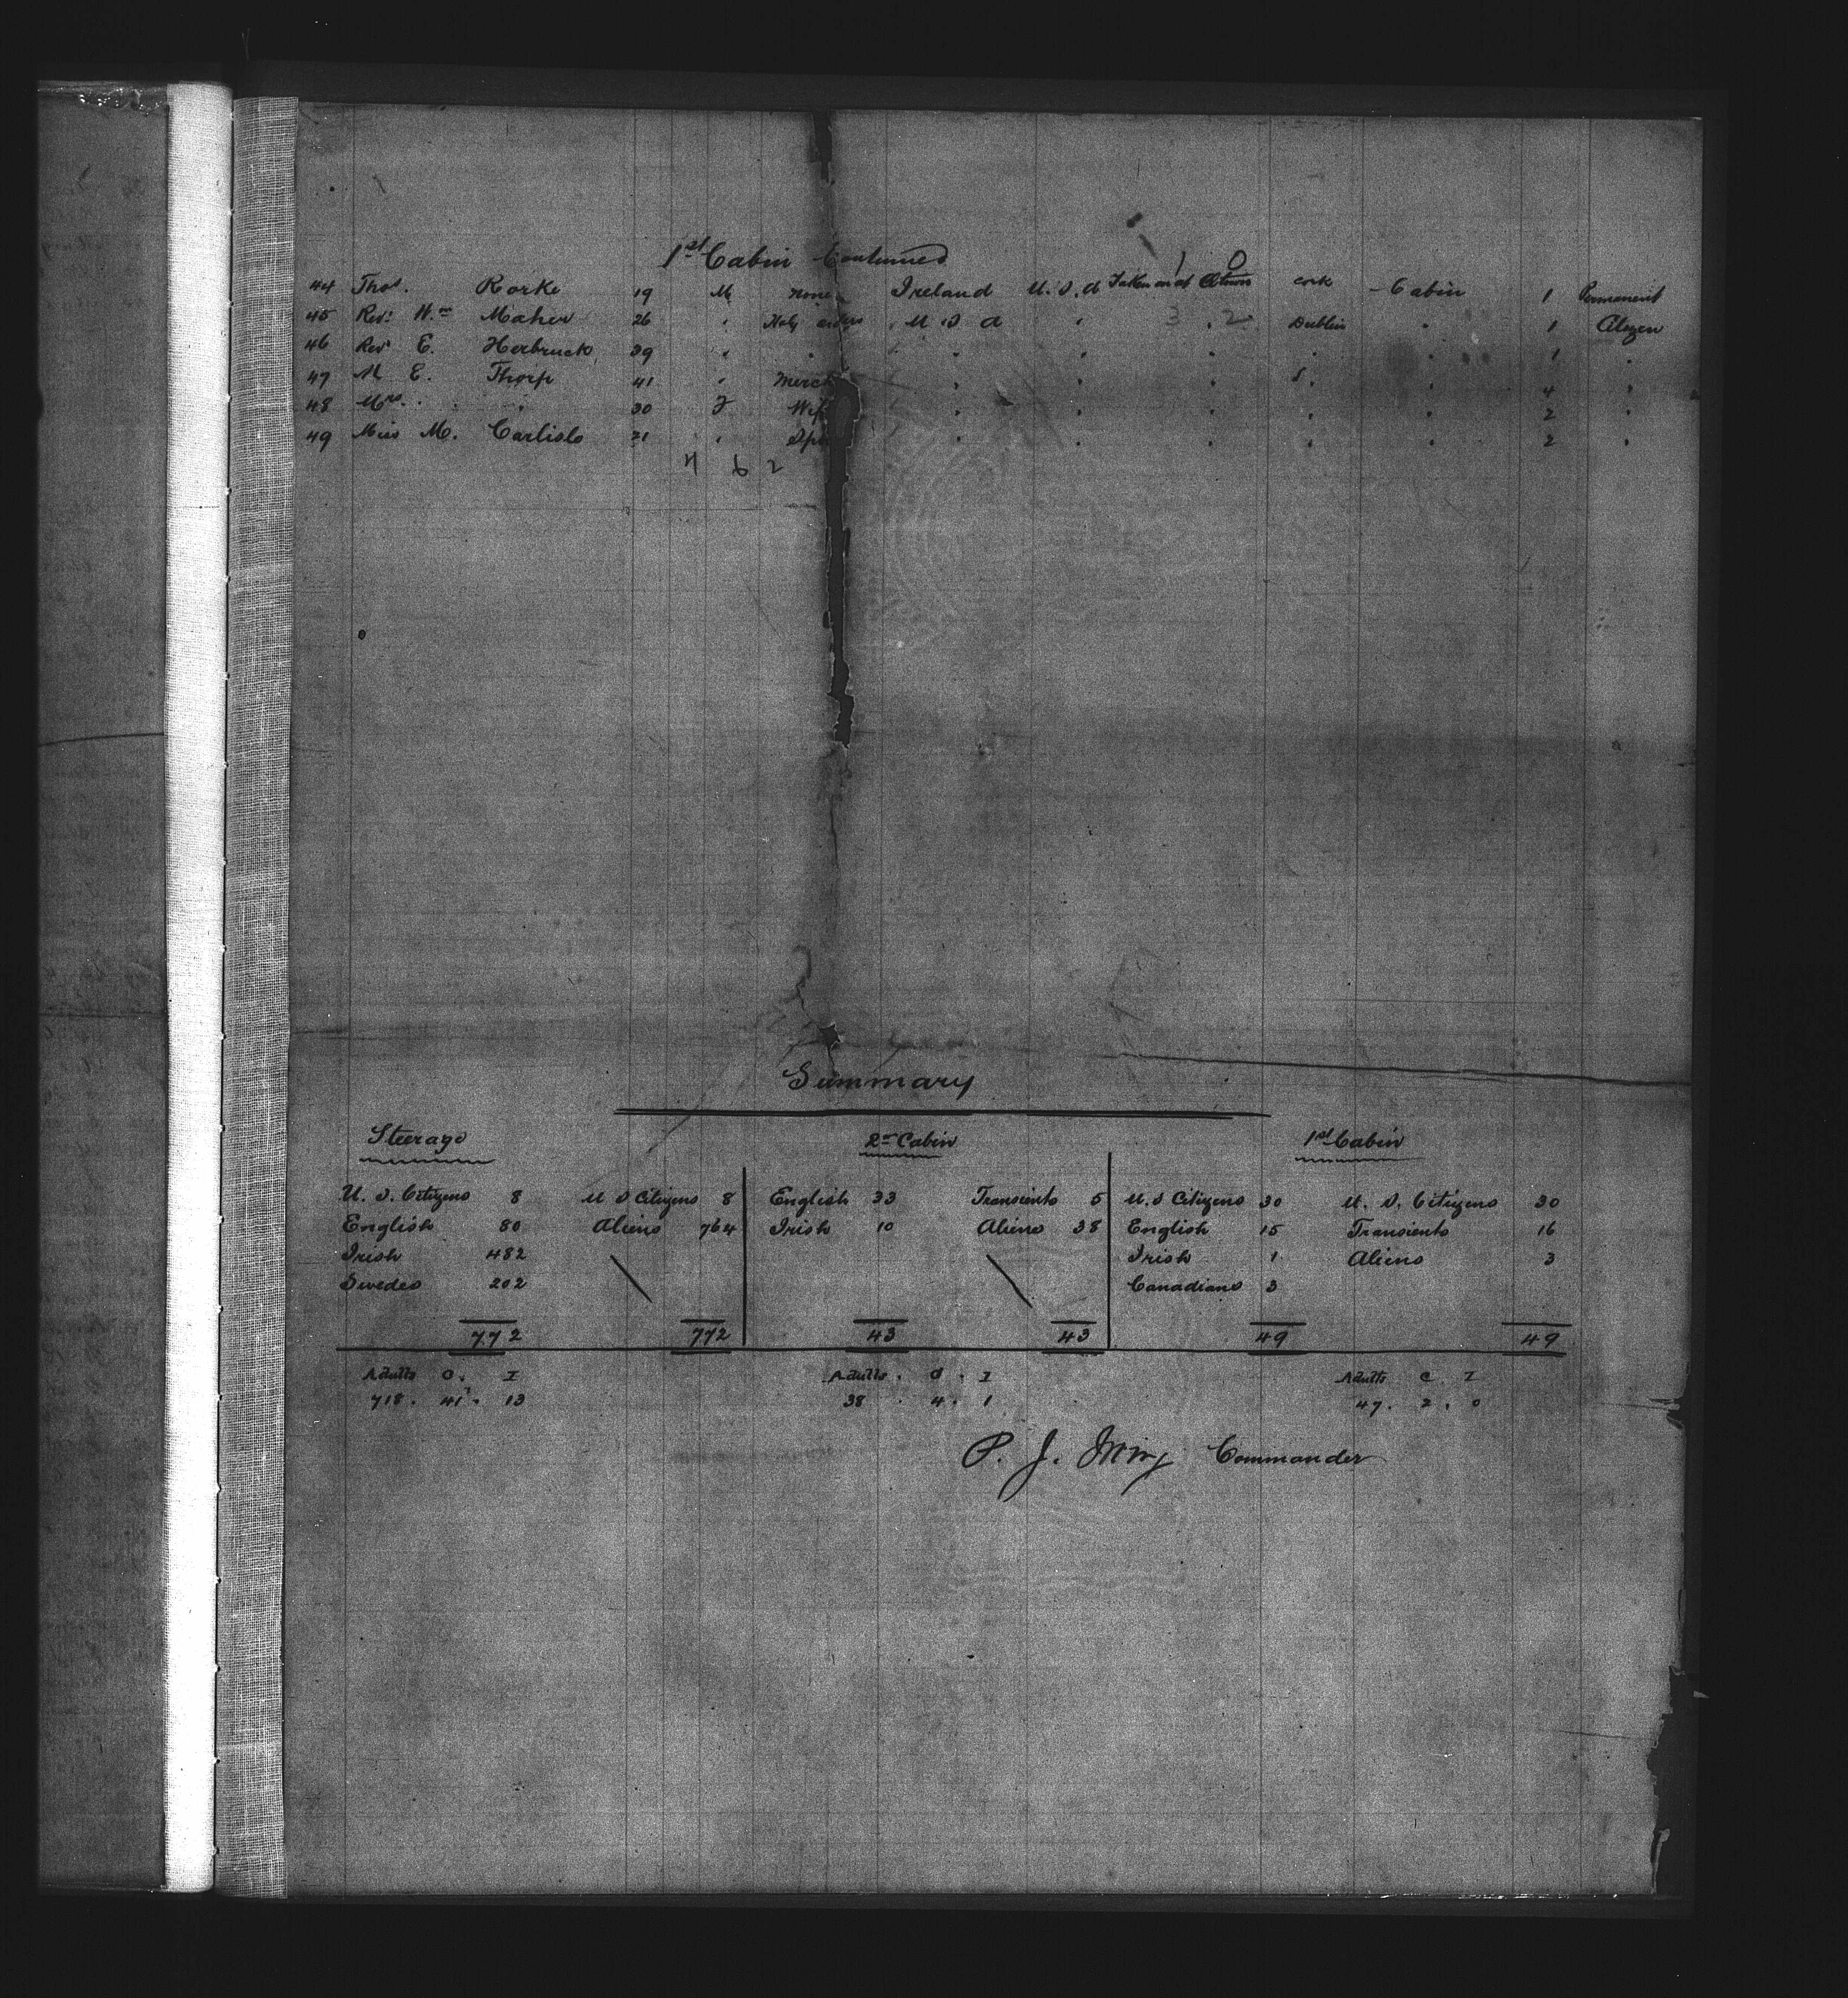 1st Cabin Continued
1 0
44 Thos. Rorke 19 M none Ireland U.S.A Taken on at Qtown cork - Cabin 1 Permanent
45 Revd. Wm Maher 26 " Holy orders " U S A " 3 . 2 Dublin " 1 Citizen
46 Revd E. Herbruck 39 " " " " " " " 1 "
47 M E. Thorp 41 " Merch " " " " " 4 "
48 Mrs. " 30 F Wife " " " " " 2 "
49 Miss M. Carlisle 21 " Spi " " " " " 2 "
4 6 2
Summary
Steerage 2nd Cabin 1st Cabin
U. S. Citizens 8 U S Citizens 8 English 33 Transients 5 U. S Citizens 30 U. S. Citizens 30
English 80 Aliens 764 Irish 10 Aliens 38 English 15 Transients 16
Irish 482 Irish 1 Aliens 3
Swedes 202 Canadians 3
772 772 43 43 49 49
Adults C. I Adults. C. I Adults C. I
718. 41. 13 38. 4. 1 47. 2. 0
P. J. Irving Commander